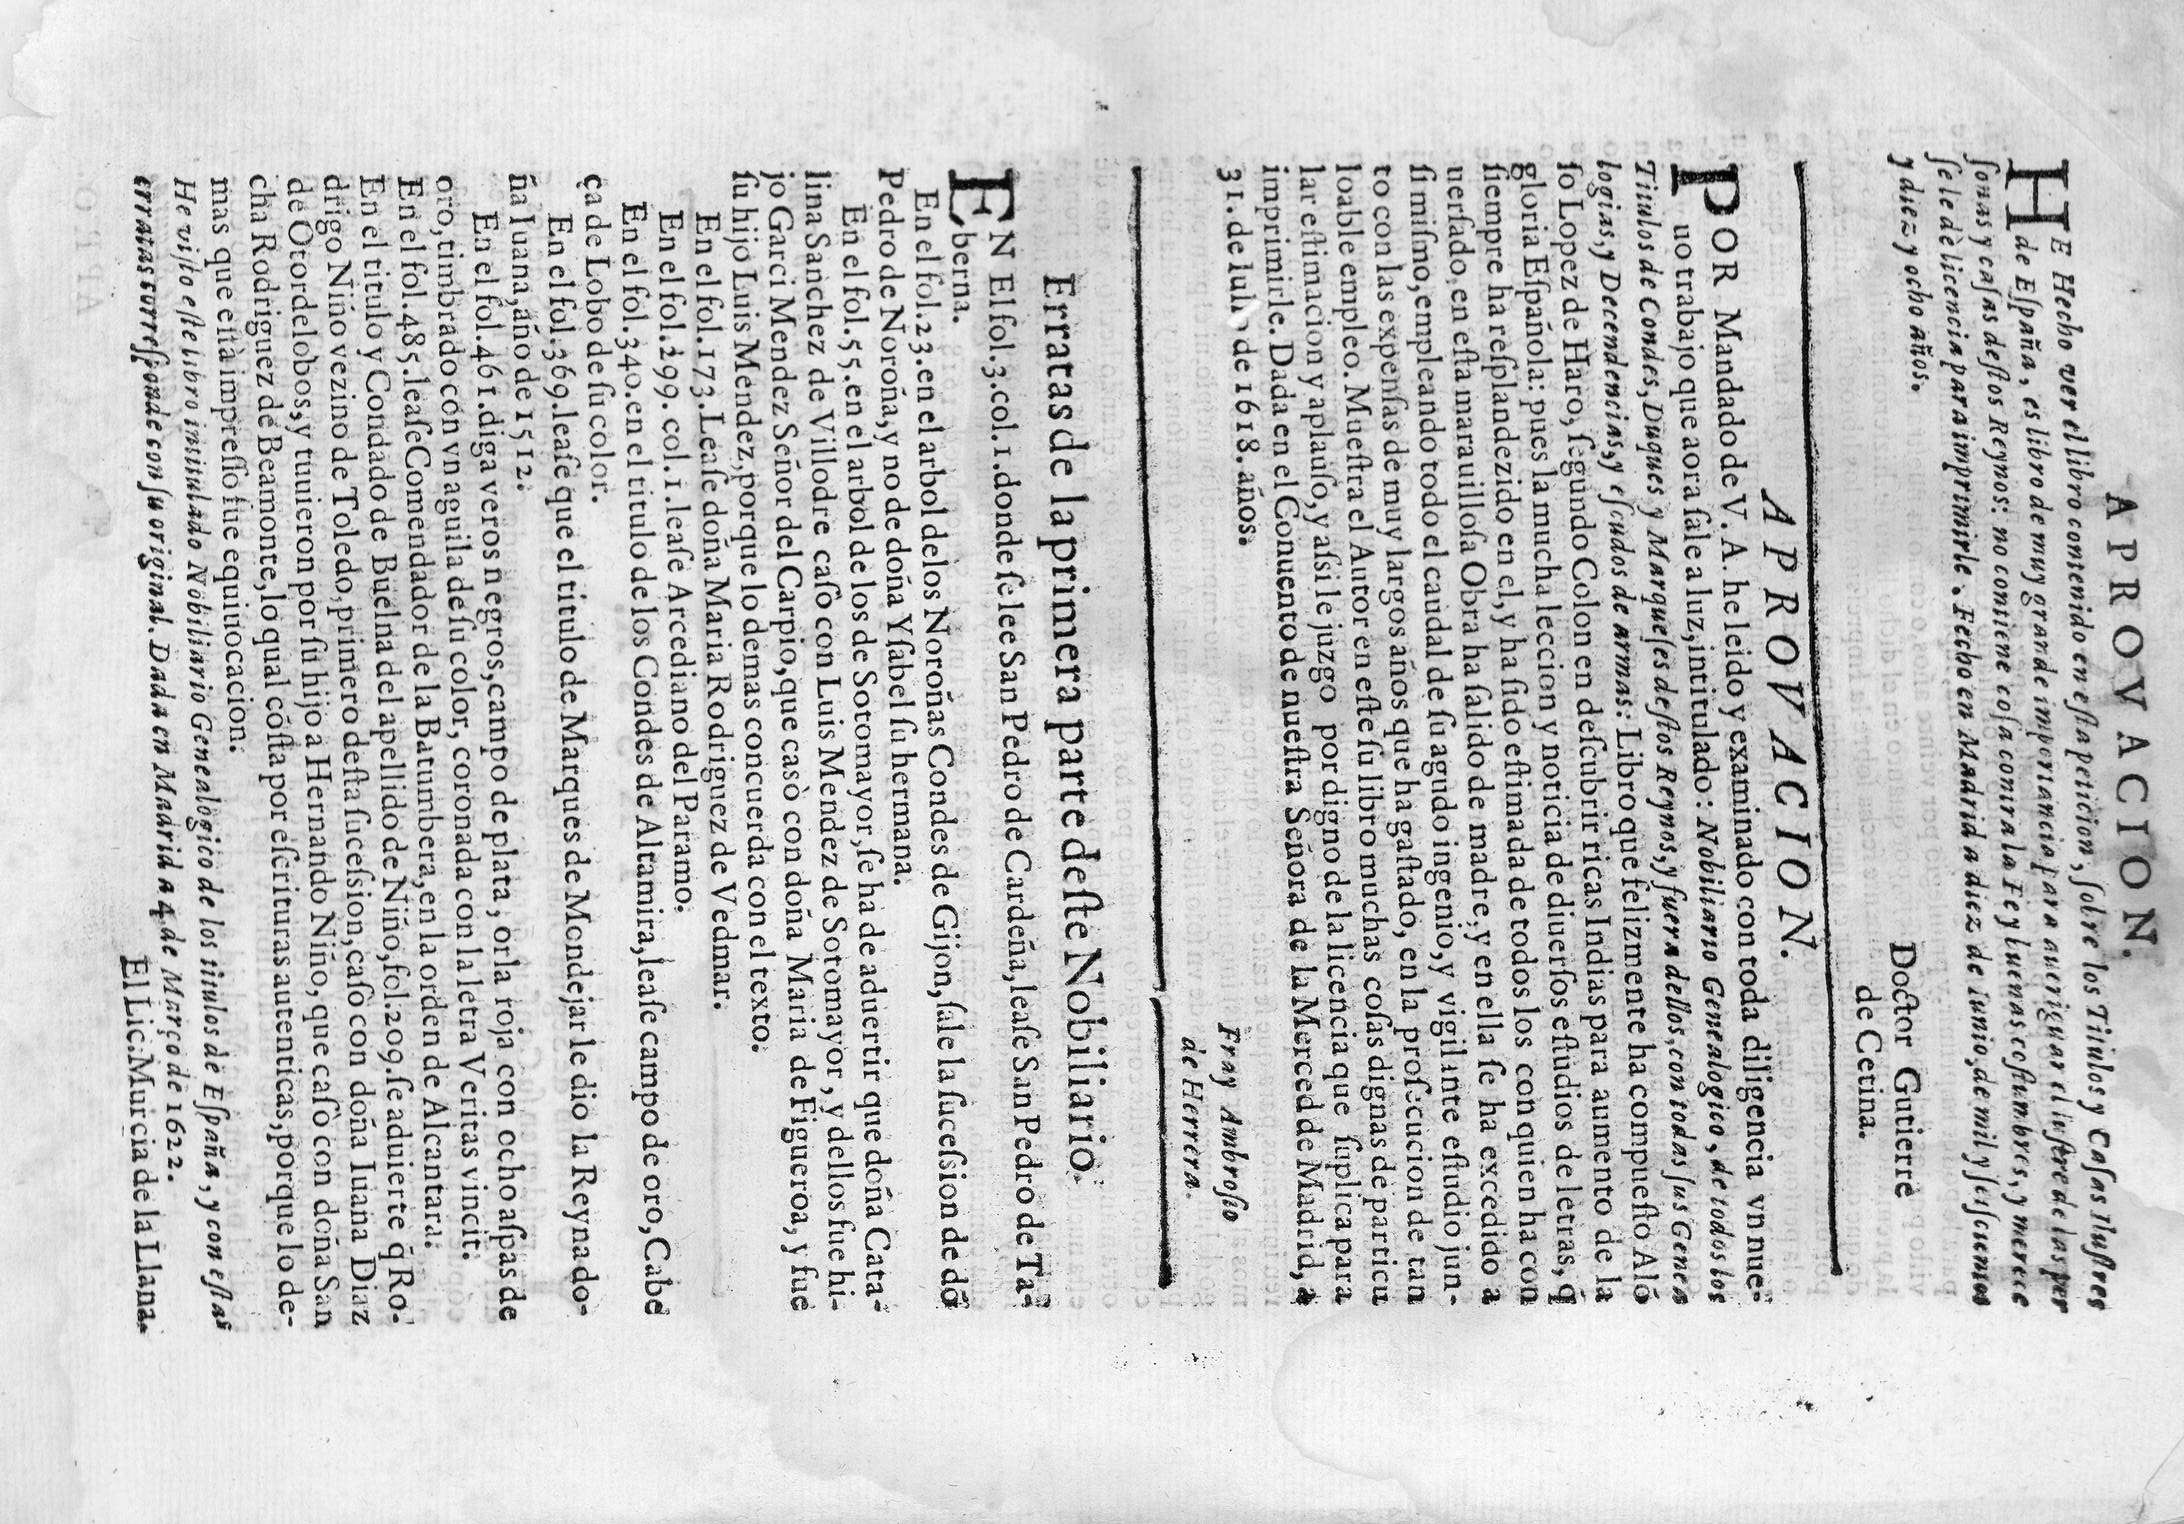 APROVACION.
HE Hecho ver el libro contenido en eſta peticion, ſobre los Titulos y Caſas Iluſtres
de Eſpaña, es libro de muy grande importancia para aueriguar el luſtre de las per
ſonas y caſas deſtos Reynos: no contiene coſa contra la Fe y buenas coſtumbres, y merece
ſe le dè licencia para imprimirle. Fecho en Madrid a diez de Iunio, de mil y ſeiſcientos
y diez y ocho años.
Doctor Gutierre
de Cetina.
APROVACION.
POR Mandado de V. A. he leido y examinado con toda diligencia vn nue-
uo trabajo que aora ſale a luz, intitulado: Nobiliario Genealogio, de todos los
Titulos de Condes, Duques y Marqueſes deſtos Reynos, y fuera dellos, con todas ſus Genea
logias, y Decendencias, y eſcudos de armas: Libro que felizmente ha compueſto Alõ
ſo Lopez de Haro, ſegundo Colon en deſcubrir ricas Indias para aumento de la
gloria Eſpañola: pues la mucha leccion y noticia de diuerſos eſtudios de letras, q̃
ſiempre ha reſplandezido en el, y ha ſido eſtimada de todos los con quien ha con
uerſado, en eſta marauilloſa Obra ha ſalido de madre, y en ella ſe ha excedido a
ſi miſmo, empleando todo el caudal de ſu agudo ingenio, y vigilante eſtudio jun-
to con las expenſas de muy largos años que ha gaſtado, en la proſecucion de tan
loable empleo. Mueſtra el Autor en eſte ſu libro muchas coſas dignas de particu
lar eſtimacion y aplauſo, y aſsi le juzgo por digno de la licencia que ſuplica para
imprimirle. Dada en el Conuento de nueſtra Señora de la Merced de Madrid, a
31. de Iulio de 1618. años.
Fray Ambroſio
de Herrera.
Erratas de la primera parte deſte Nobiliario.
EN El fol. 3. col. 1. donde ſe lee San Pedro de Cardeña, leaſe San Pedro de Ta-
berna.
En el fol. 23. en el arbol de los Noroñas Condes de Gijon, ſale la ſuceſsion de dõ
Pedro de Noroña, y no de doña Yſabel ſu hermana.
En el fol. 55. en el arbol de los de Sotomayor, ſe ha de aduertir que doña Cata-
lina Sanchez de Villodre caſò con Luis Mendez de Sotomayor, y dellos fue hi-
jo Garci Mendez Señor del Carpio, que casò con doña Maria de Figueroa, y fue
ſu hijo Luis Mendez, porque lo demas concuerda con el texto.
En el fol. 173. Leaſe doña Maria Rodriguez de Vedmar.
En el fol. 299. col. 1. leaſe Arcediano del Paramo.
En el fol. 340. en el titulo de los Condes de Altamira, leaſe campo de oro, Cabe
ça de Lobo de ſu color.
En el fol. 369. leaſe que el titulo de Marques de Mondejar le dio la Reyna do-
ña Iuana, año de 1512.
En el fol. 461. diga veros negros, campo de plata, orla roja con ocho aſpas de
oro, timbrado con vn aguila de ſu color, coronada con la letra Veritas vincit.
En el fol. 485. leaſe Comendador de la Batumbera, en la orden de Alcantara.
En el titulo y Condado de Buelna del apellido de Niño, fol. 209. ſe aduierte q̃ Ro-
drigo Niño vezino de Toledo, primero deſta ſuceſsion, caſò con doña Iuana Diaz
de Otordelobos, y tuuieron por ſu hijo a Hernando Niño, que caſò con doña San
cha Rodriguez de Beamonte, lo qual cõſta por eſcrituras autenticas, porque lo de-
mas que eſtà impreſſo fue equiuocacion.
He viſto eſte libro intitulado Nobiliario Genealogico de los titulos de Eſpaña, y con eſtas
erratas correſponde con ſu original. Dada en Madrid a 4. de Março de 1622.
El Lic. Murcia de la Llana.